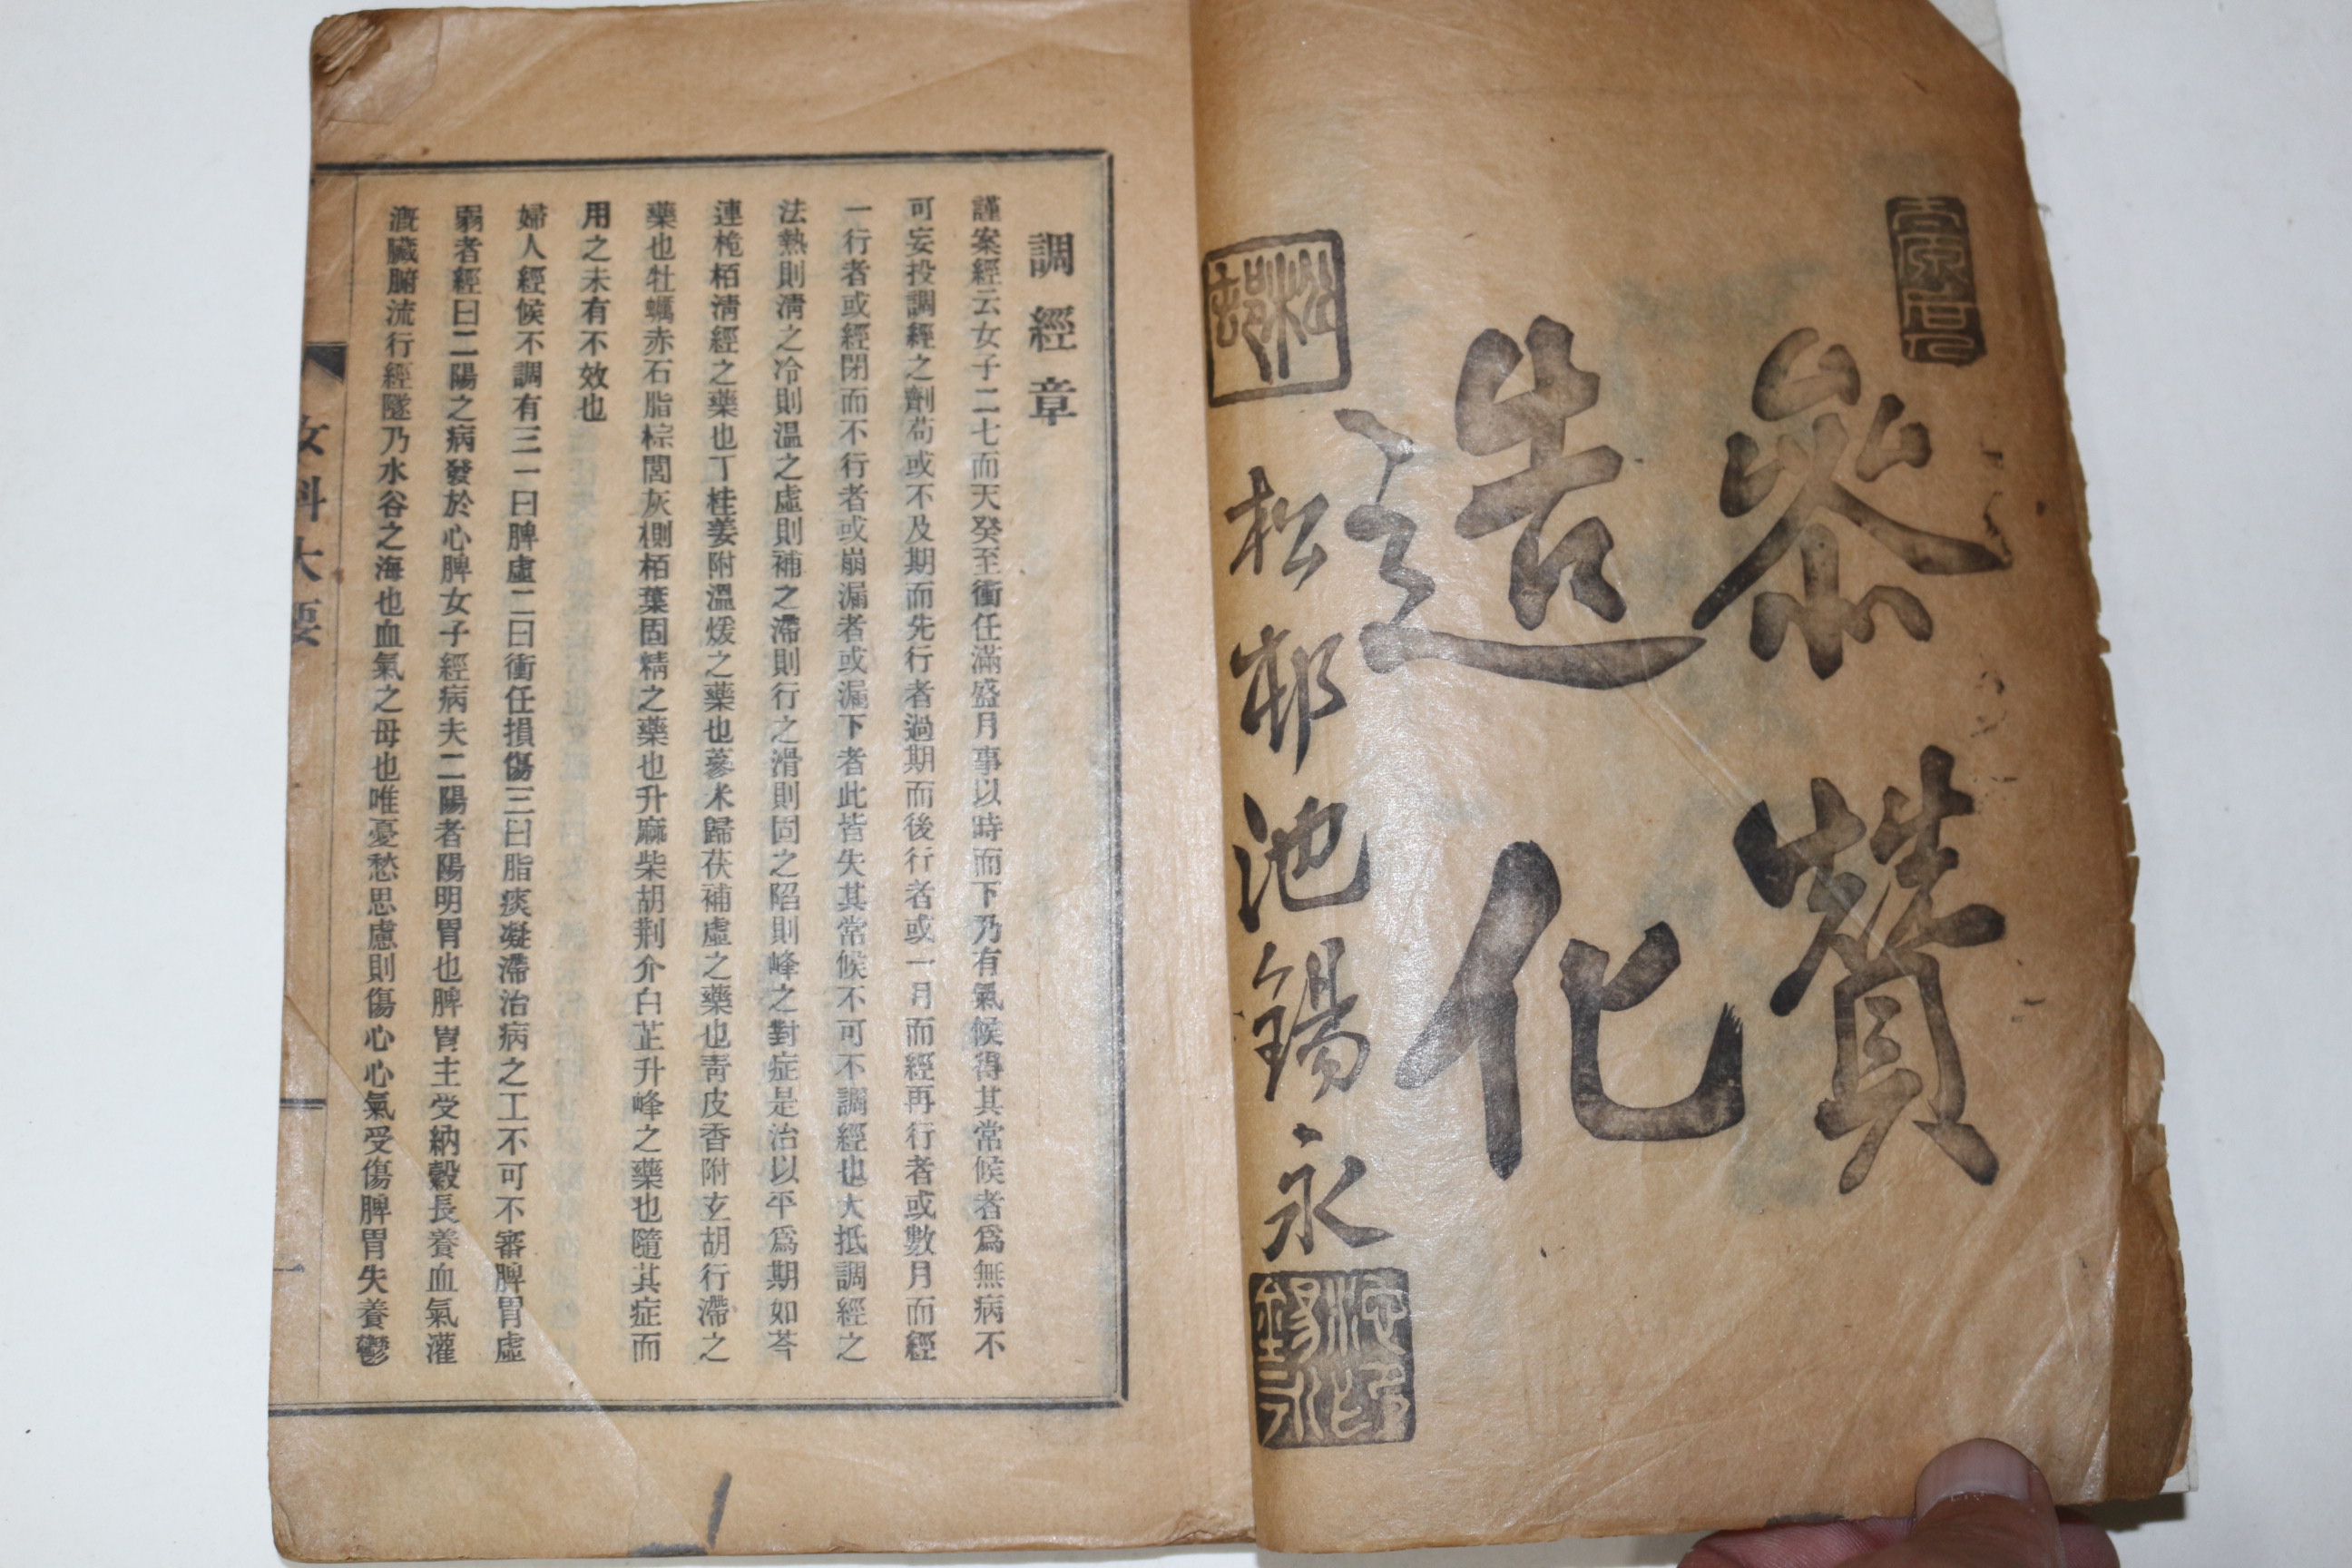 參贊
造化
松邨池錫永
調經章
謹案經云女子二七而天癸至衝任滿盛月事以時而下乃有氣候得其常候者爲無病不
可妄投調經之劑苟或不及期而先行者過期而後行者或一月而經再行者或數月而經
一行者或經閉而不行者或崩漏者或漏下者此皆失其常候不可不調經也大抵調經之
法熱則淸之冷則温之虛則補之滯則行之滑則固之陷則峰之對症是治以平爲期如芩
連梔栢淸經之藥也丁桂姜附溫煖之藥也蔘朮歸茯補虛之藥也靑皮香附玄胡行滯之
藥也牡蠣赤石脂棕閭灰側栢葉固精之藥也升麻柴胡荆介白芷升峰之藥也隨其症而
用之未有不效也
婦人經候不調有三一曰脾虛二曰衝任損傷三曰脂痰凝滯治病之工不可不審脾胃虛
弱者經曰二陽之病發於心脾女子經病夫二陽者陽明胃也脾胃主受納穀長養血氣灌
漑臟腑流行經隧乃水谷之海也血氣之母也唯憂愁思慮則傷心心氣受傷脾胃失養鬱
女科大要
一